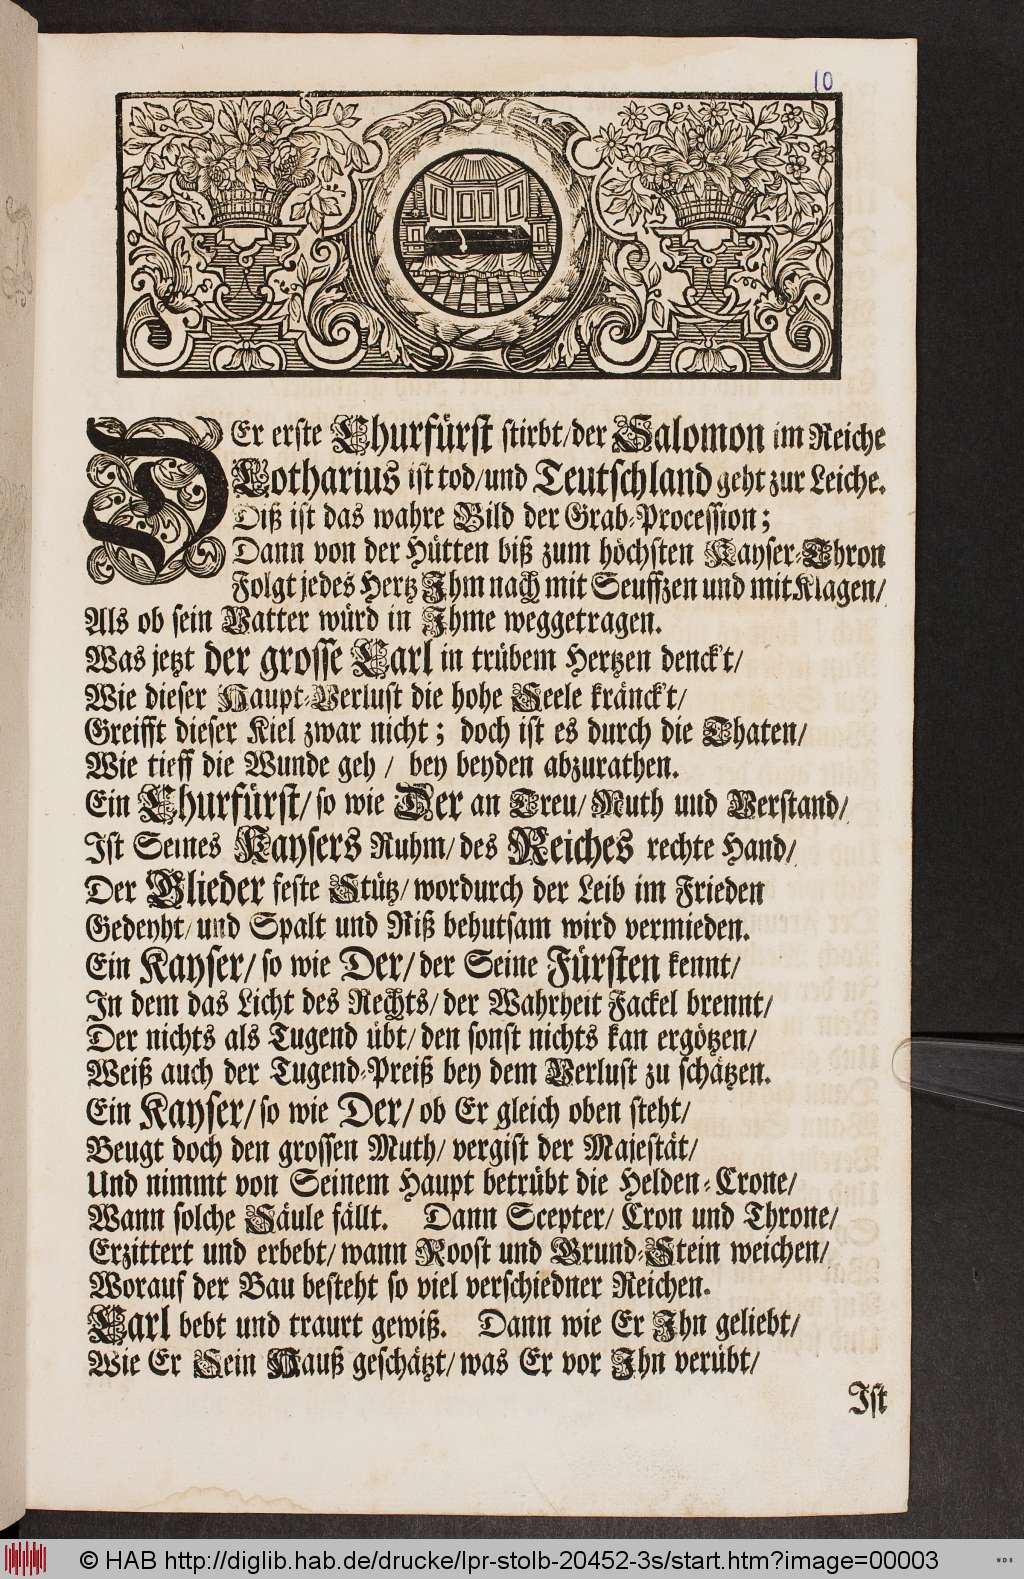 10
DEr erste Churfürst stirbt/der Salomon im Reiche
Lotharius ist tod/und Teutschland geht zur Leiche.
Diß ist das wahre Bild der Grab-Procession;
Dann von der Hütten biß zum höchsten Kayser-Thron
Folgt jedes Hertz Ihm nach mit Seuffzen und mit Klagen/
Als ob sein Vatter würd in Ihme weggetragen.
Was jetzt der grosse Carl in trübem Hertzen denck't/
Wie dieser Haupt-Verlust die hohe Seele kränck't/
Greifft dieser Kiel zwar nicht; doch ist es durch die Thaten/
Wie tieff die Wunde geh/ bey beyden abzurathen.
Ein Churfürst/ so wie Der an Treu/ Muth und Verstand/
Ist Seines Kaysers Ruhm/ des Reiches rechte Hand/
Der Glieder feste Stütz/ wordurch der Leib im Frieden
Gedeyht/ und Spalt und Riß behutsam wird vermieden.
Ein Kayser/ so wie Der/ der Seine Fürsten kennt/
In dem das Licht des Rechts/ der Wahrheit Fackel brennt/
Der nichts als Tugend übt/ den sonst nichts kan ergötzen/
Weiß auch der Tugend-Preiß bey dem Verlust zu schätzen.
Ein Kayser/ so wie Der/ ob Er gleich oben steht/
Beugt doch den grossen Muth/ vergist der Majestät/
Und nimmt von Seinem Haupt betrübt die Helden-Crone/
Wann solche Säule fällt. Dann Scepter/ Cron und Throne/
Erzittert und erbebt/ wann Roost und Grund-Stein weichen/
Worauf der Bau besteht so viel verschiedner Reichen.
Carl bebt und traurt gewiß. Dann wie Er Ihn geliebt/
Wie Er Sein Hauß geschätzt/ was Er vor Ihn verübt/
Ist
© HAB http://diglib.hab.de/drucke/lpr-stolb-20452-3s/start.htm?image=00003